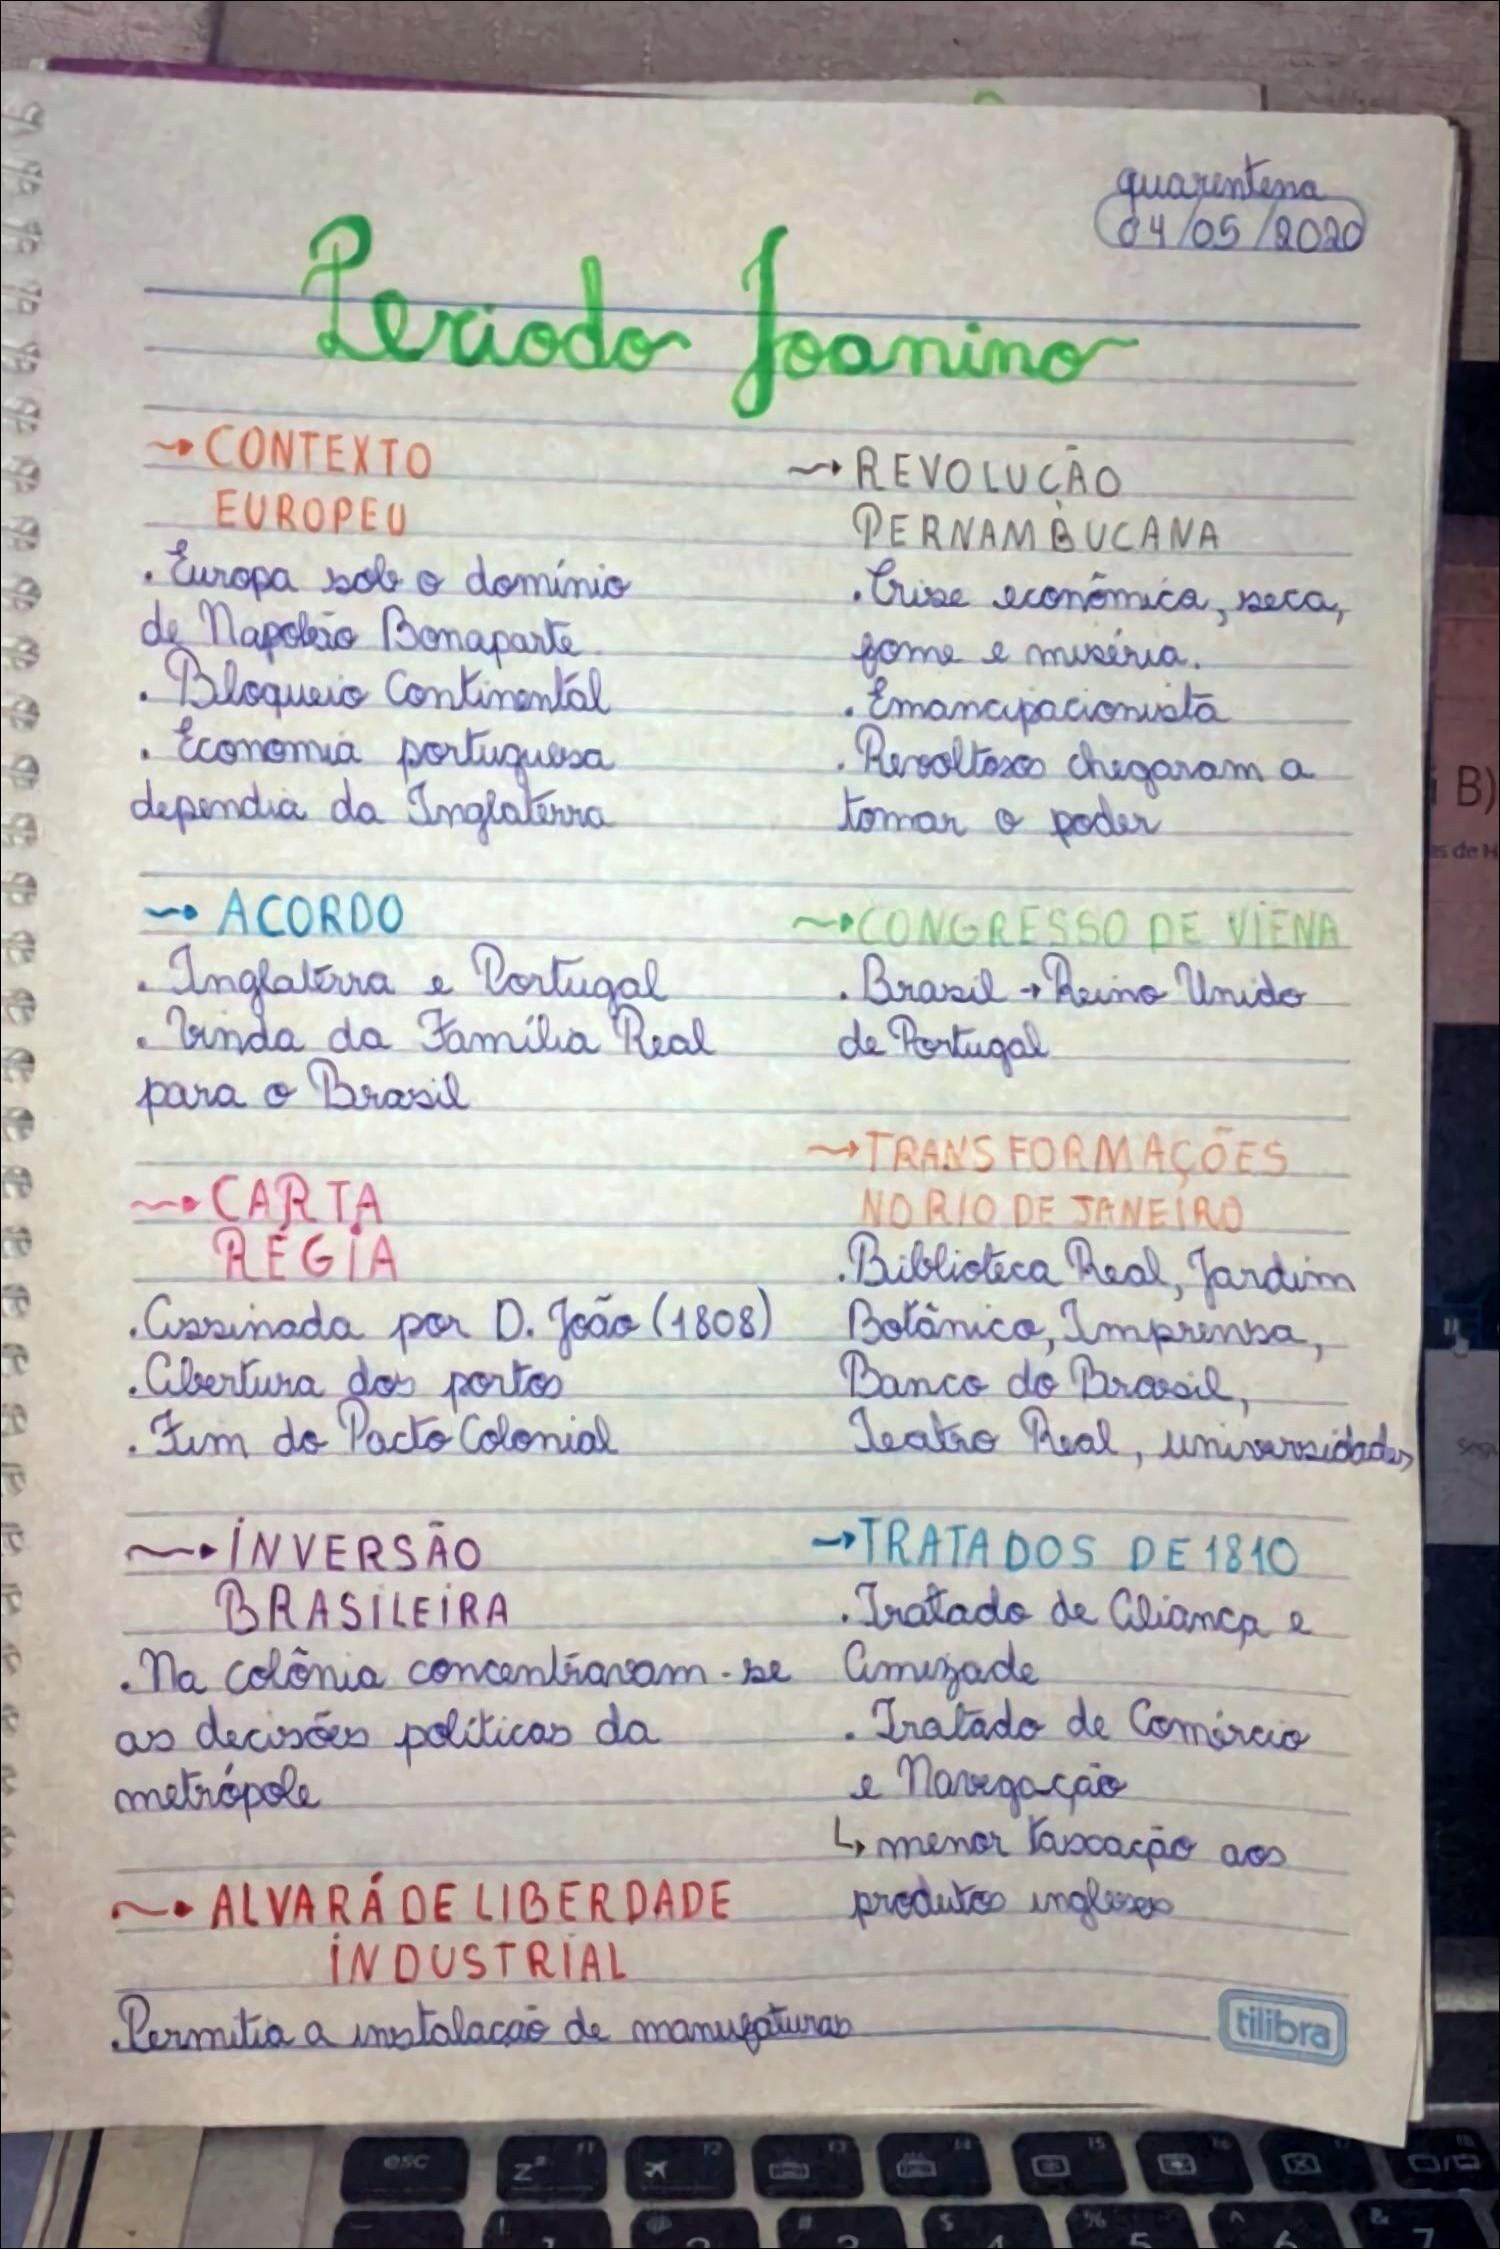 quarentena
04/05/2020
Periodo Joanino
→ CONTEXTO
EUROPEU
. Europa sob o domínio
de Napoleão Bonaparte
. Bloqueio Continental
. Economia portuguesa
dependia da Inglaterra
→ ACORDO
. Inglaterra e Portugal
. Vinda da Família Real
para o Brasil
→ CARTA
RÉGIA
. Assinada por D. João (1808)
. Abertura dos portos
. Fim do Pacto Colonial
→ INVERSÃO
BRASILEIRA
. Na colônia concentravam-se
as decisões políticas da
metrópole
→ ALVARÁ DE LIBERDADE
INDUSTRIAL
. Permitia a instalação de manufaturas
→ REVOLUÇÃO
PERNAMBUCANA
. Crise econômica, seca,
fome e miséria.
. Emancipacionista
. Revoltosos chegaram a
tomar o poder
→ CONGRESSO DE VIENA
. Brasil → Reino Unido
de Portugal
→ TRANSFORMAÇÕES
NO RIO DE JANEIRO
. Biblioteca Real, Jardim
Botânico, Imprensa,
Banco do Brasil,
Teatro Real, universidades
→ TRATADOS DE 1810
. Tratado de Aliança e
Amizade
. Tratado de Comércio
e Navegação
↳ menor taxação aos
produtos ingleses
tilibra
B)
as de H
esc
f1
f2
f3
f4
f5
f6
z
!
1
2
#
3
$
4
%
5
^
6
&
7